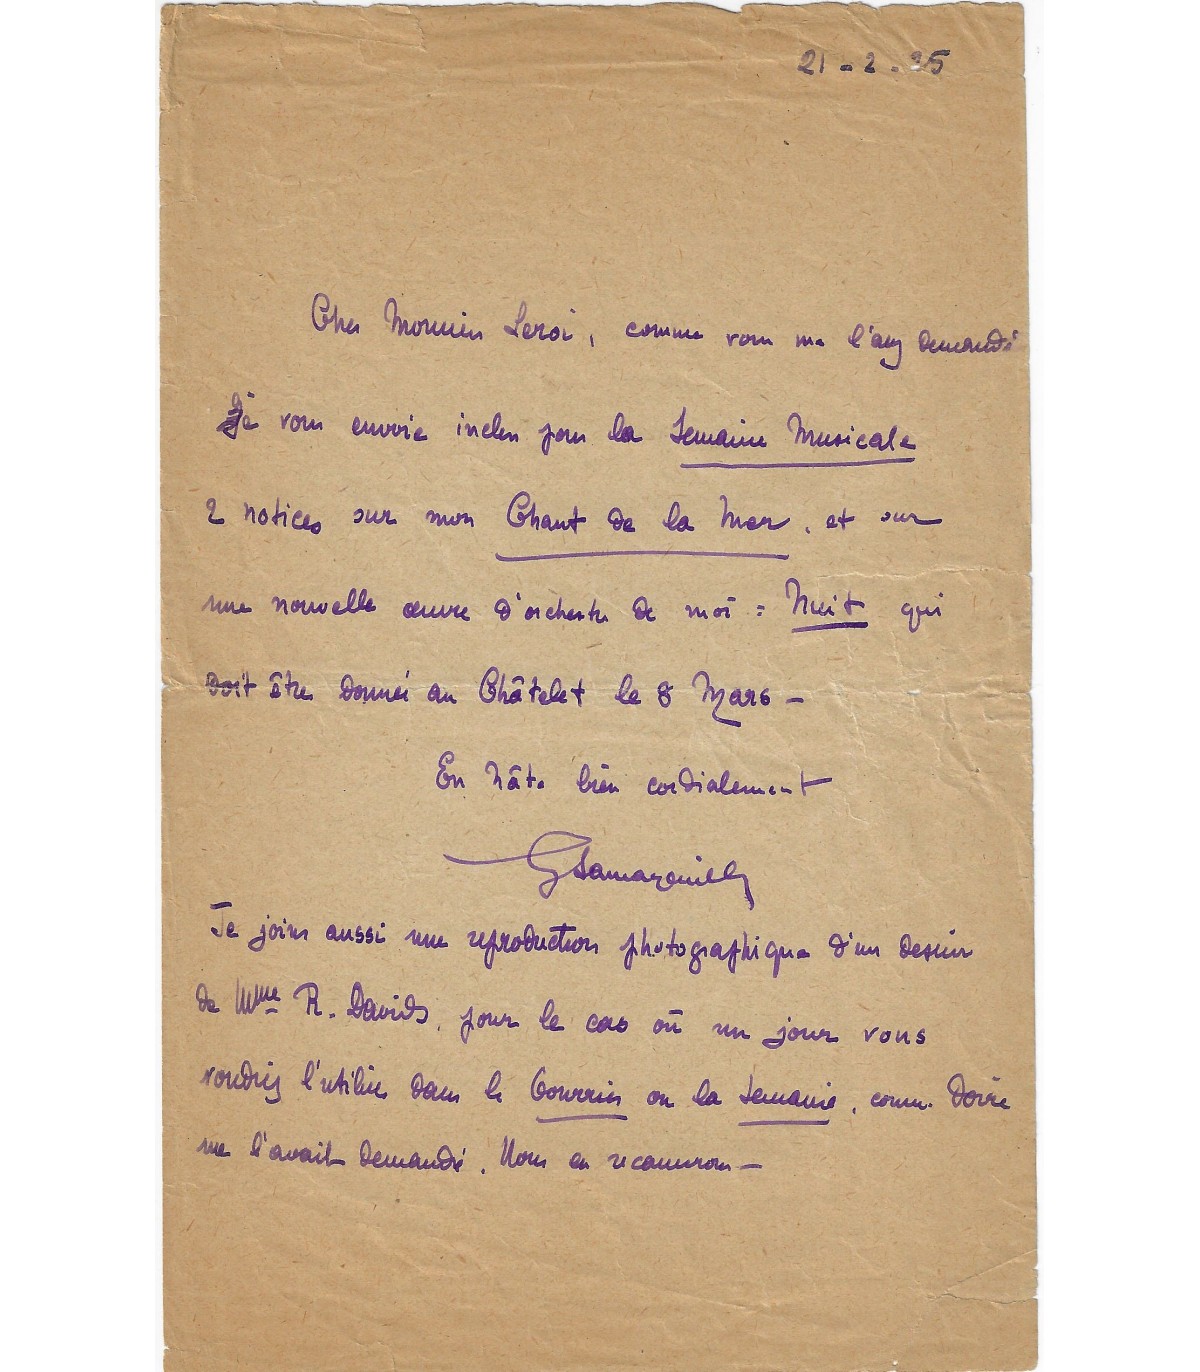 21 - 2 . 25
Cher Monsieur Leroi, comme vous me l'avez demandé
Je vous envoie inclus pour la Semaine Musicale
2 notices sur mon Chant de la Mer, et sur
une nouvelle œuvre d'orchestre de moi : Nuit qui
doit être donnée au Châtelet le 8 Mars —
En hâte bien cordialement
G Samazeuilh
Je joins aussi une reproduction photographique d'un dessin
de Mme R. Davids, pour le cas où un jour vous
voudriez l'utiliser dans le Courrier ou la Semaine, comme Doire
me l'avait demandé. Nous en recauserons —